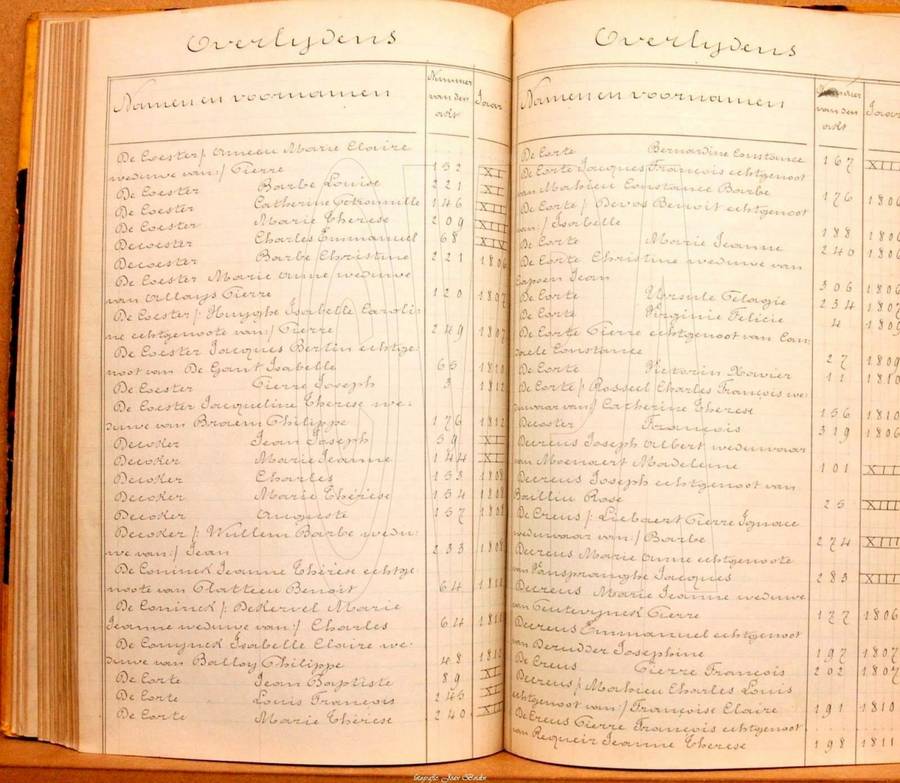 Overlydens
Namen en voornamen Nummer van den akt Jaar
De Coester / Ameeu Marie Claire
weduwe van / Pierre 152 XI
De Coester Barbe Louise 221 XI
De Coester Catherine Petronnille 146 XII
De Coester Marie Therese 209 XIII
Decoester Charles Emmanuel 68 XIV
Decoester Barbe Christine 221 1806
De Coester Marie Anne weduwe
van Allays Pierre 120 1807
De Coester / Huyghe Isabelle Caroli-
ne echtgenoote van / Pierre 249 1807
De Coester Jacques Bertin echtge-
noot van De Gant Isabelle 65 1810
De Coester Pierre Joseph 3 1812
De Coester Jacqueline Therese we-
duwe van Brouem Philippe 176 1812
Decoker Jean Joseph 59 XI
Decoker Marie Jeanne 144 XI
Decoker Charles 153 1808
Decoker Marie Thérèse 154 1808
Decoker Auguste 157 1808
Decoker / Wullem Barbe wedu-
we van / Jean 233 1808
De Coninck Jeanne Thérèse echtge
noote van Platteeu Benoit 64 1811
De Coninck / DeKervel Marie
Jeanne weduwe van / Charles 64 1811
De Conynck Isabelle Claire we-
duwe van Balloy Philippe 48 1812
De Corte Jean Baptiste 89 XI
De Corte Louis François 245 XI
De Corte Marie Thérèse 240 XI
Overlydens
Namen en voornamen Nummer van den akt Jaar
De Corte Bernardine Constance 167 XII
De Corte Jacques François echtgenoot
van Mahieu Constance Barbe 176 1806
De Corte / Devos Benoit echtgenoot
van / Isabelle 188 1806
De Corte Marie Jeanne 240 1806
De Corte Christine weduwe van
Capoen Jean 306 1806
De Corte Ursule Pelagie 234 1807
De Corte Virginie Felicie 4 1809
De Corte Pierre echtgenoot van Can-
daele Constance 27 1809
De Corte Victorin Xavier 11 1810
De Corte / Rosseel Charles François we-
duwaar van / Catherine Therese 156 1810
Decoster François 319 1806
Decreus Joseph Albert weduwaar
van Moenaert Madeleine 101 XII
Decreus Joseph echtgenoot van
Bailliu Rose 25 XIII
De Creus / Liebaert Pierre Ignace
weduwaar van / Barbe 274 XIII
Decreus Marie Anne echtgenoote
van Vanspranghe Jacques 283 XIII
Decreus Marie Jeanne weduwe
van Ceuterynck Pierre 177 1806
Decreus Emmanuel echtgenoot
van Derudder Josephine 197 1807
De Creus Pierre François 202 1807
Decreus / Mahieu Charles Louis
echtgenoot van / Françoise Claire 191 1810
De Creus Pierre François echtgenoot
van Requeir Jeanne Therese 198 1811